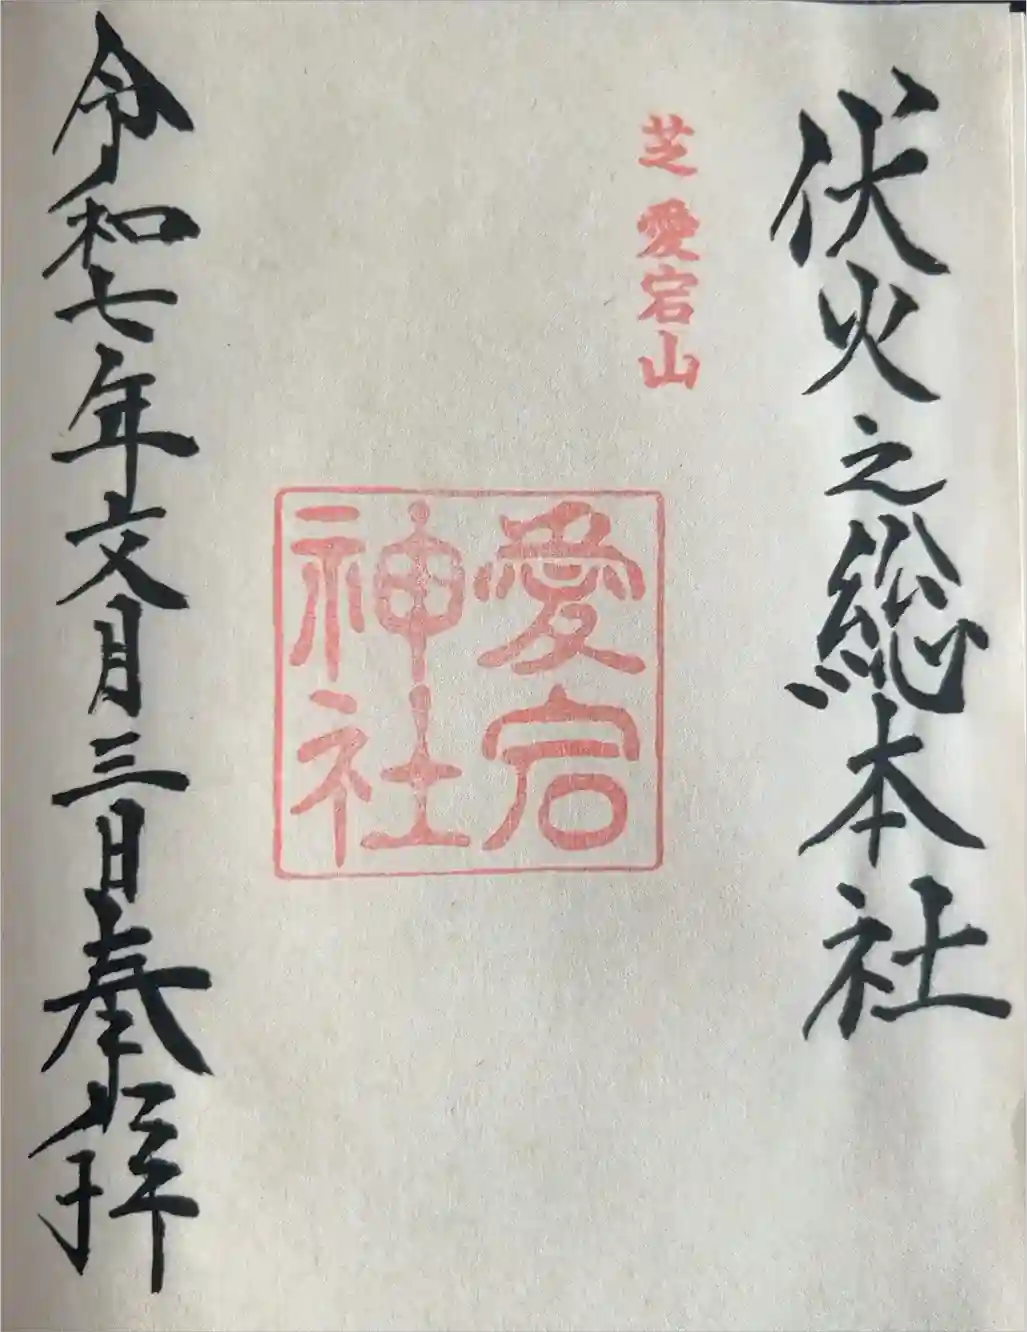 伏火之総本社
芝 愛宕山
愛宕
神社
令和七年文月三日奉拝